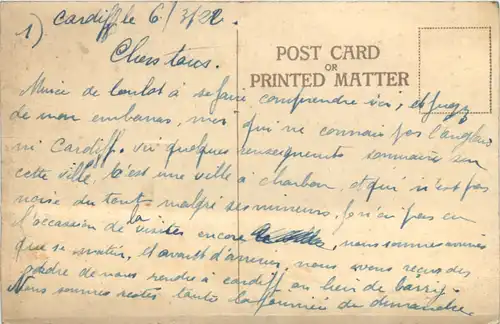 1) Cardiff le 6/3/22.
Chers tous.
POST CARD
OR
PRINTED MATTER
de à se faire comprendre ici, et jugez
de mon embarras, moi qui ne connais pas l'anglais
ni Cardiff. quelques renseignements sommaires sur
cette ville. C'est une ville à charbon, et qui n'est pas
noire du tout malgré ses mineurs, je n'ai pas eu
l'occasion de la visiter encore nous sommes arrivés
que ce matin, et avant d'arriver nous avons reçu des
ordre de nous rendre à Cardiff au lieu de Barry.
Nous sommes restés toute la journée du dimanche